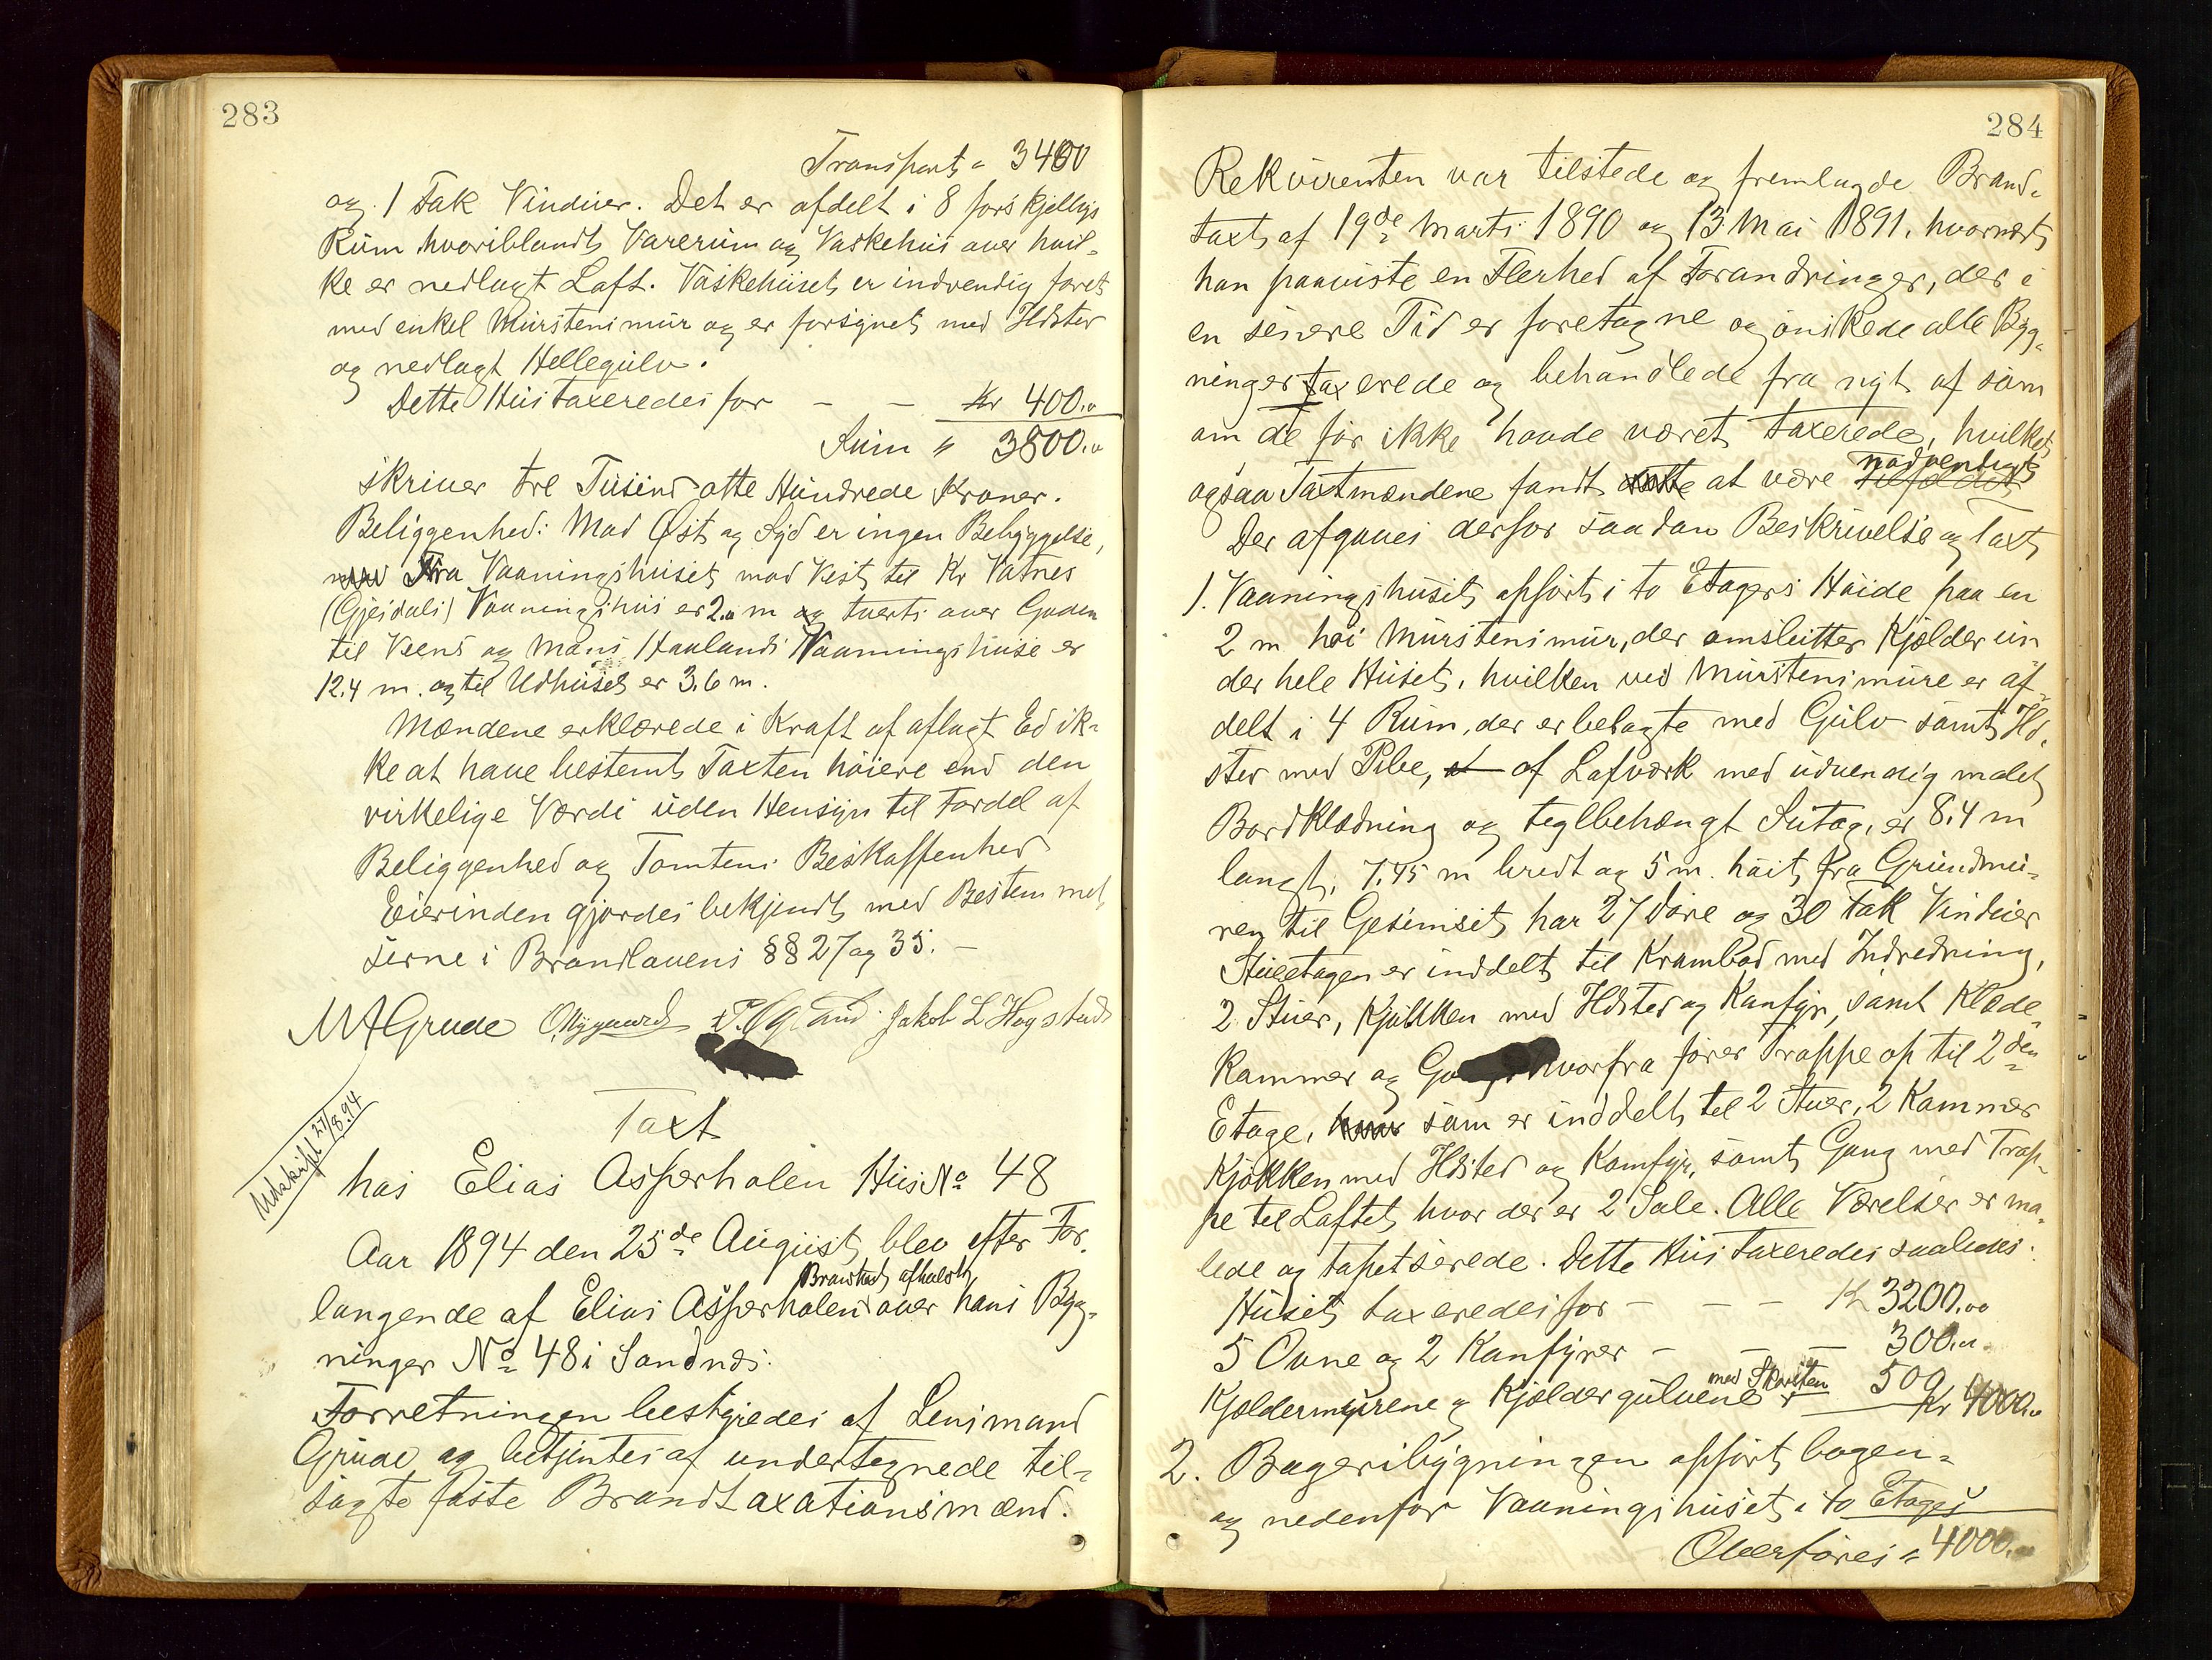 283
Transport " 3400
og 1 Fak Vinduer. Det er afdelt i 8 forskjellige
Rum hvoriblandt Varerum og Vaskehus over hvil-
ke er nedlagt Loft. Vaskehuset er indvendig foret
med enkel Murstensmur og er forsynet med Ildsted
og nedlagt Hellegulv.
Dette Hus taxeredes for — — Kr 400.00
Sum " 3800.00
skriver tre Tusind otte Hundrede Kroner.
Beliggenhed: Mod Øst og Syd er ingen Bebyggelse,
Fra Vaaningshuset mod Vest til Kr Vatnes
(Gjesdals) Vaaningshus er 2.0 m og tverts over Gaden
til Veens og Mans Haalands Vaaningshuse er
12.4 m. og til Udhuset er 3.6 m.
Mændene erklærede i Kraft af aflagt Ed ik-
ke at have bestemt Taxten høiere end den
virkelige Værdi uden Hensyn til Fordel af
Beliggenhed og Tomtens Beskaffenhed
Eierinden gjordes bekjendt med Bestemmel-
serne i Brandlovens §§ 27 og 35. —
M A Grude O Nygaard T. Ogland Jakob L Hogstad
Udskrift 27/8.94
Taxt
hos Elias Asperholen Hus No 48
Aar 1894 den 25de August blev efter For-
langende af Elias Asperholen Brandtaxt afholdt over hans Byg-
ninger No 48 i Sandnæs.
Forretningen bestyredes af Lensmand
Grude og betjentes af undertegnede til-
sagte faste Brandtaxationsmænd.
284
Rekvirenten var tilstede og fremlagde Brand-
taxt af 19de Marts 1890 og 13 Mai 1891, hvornæst
han paaviste en Flerhed af Forandringer, der i
en senere Tid er foretagne og ønskede alle Byg-
ninger taxerede og behandlede fra nyt af som
om de før ikke havde været taxerede, hvilket
ogsaa Taxtmændene fandt at være nødvendigt
Der afgaves derfor saadan Beskrivelse og Taxt
1. Vaaningshuset opført i to Etagers Høide paa en
2 m høi Murstensmur, der omslutter Kjelder un
der hele Huset, hvilken ved Murstensmure er af-
delt i 4 Rum, der er belagte med Gulv samt Ild-
sted med Pibe, af Lafværk med udvendig malet
Bordklædning og teglbehængt Sutag, er 8.4 m
langt, 7.45 m bredt og 5 m. høit fra Grundmu-
ren til Gesimset, har 27 Døre og 30 Fak Vinduer
Stueetagen er inddelt til Krambod med Indredning,
2 Stuer, Kjøkken med Ildsted og Kamfyr, samt Klæde-
kammer og Gang hvorfra fører Trappe op til 2den
Etage, som er inddelt til 2 Stuer, 2 Kammer
Kjøkken med Ildsted og Komfyr, samt Gang med Trap-
pe til Loftet, hvor der er 2 Sale. Alle Værelser er ma-
lede og tapetserede. Dette Hus taxeredes saaledes:
Huset taxeredes for — — — Kr 3200.00
5 Ovne og 2 Kamfyrer — — — 300.00
Kjeldermurene og Kjeldergulvene med Skorsten 500 Kr 4000.00
2. Bageribygningen opført bagen-
og nedenfor Vaaningshuset i to Etager
Overføres " 4000.00